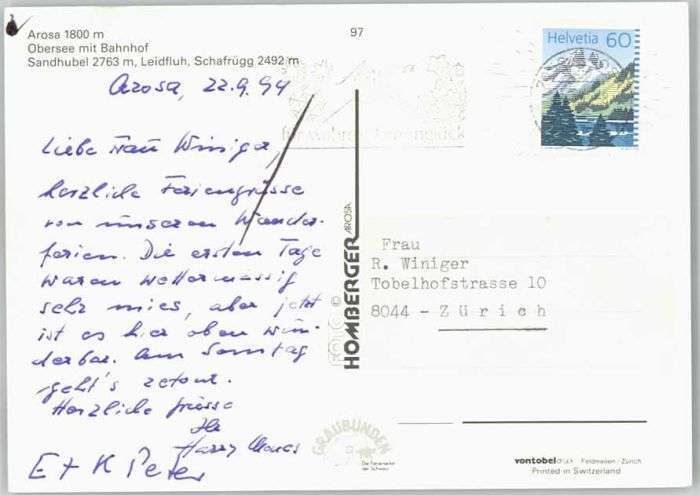 Arosa 1800 m
Obersee mit Bahnhof
Sandhubel 2763 m, Leidfluh, Schafrügg 2492 m
97
Helvetia 60
Arosa, 22.9.94
Liebe Frau Winiger,
herzliche Feriengrüsse
von unseren Wander-
ferien. Die ersten Tage
waren wettermässig
sehr mies, aber jetzt
ist es hier oben wun-
derbar. Am Sonntag
geht's retour.
Herzliche Grüsse
Ihr
Harry
E + K Peter
FOTO ©
HOMBERGER AROSA
Frau
R. Winiger
Tobelhofstrasse 10
8044 - Zürich
GRAUBÜNDEN
Die Ferienecke
der Schweiz
vontobeldruck Feldmeilen/Zürich
Printed in Switzerland